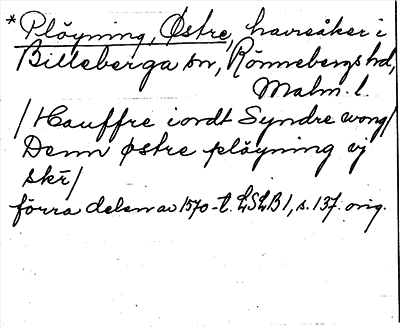 *Plöyning, Østre, havreåker i
Billeberga sn, Rönnebergs hd,
Malm. l.
/Hauffre iordt Syndre wong/
Denn østre plöyning vj
skr̄/
förra delen av 1570-t. LSLB1, s. 137. orig.